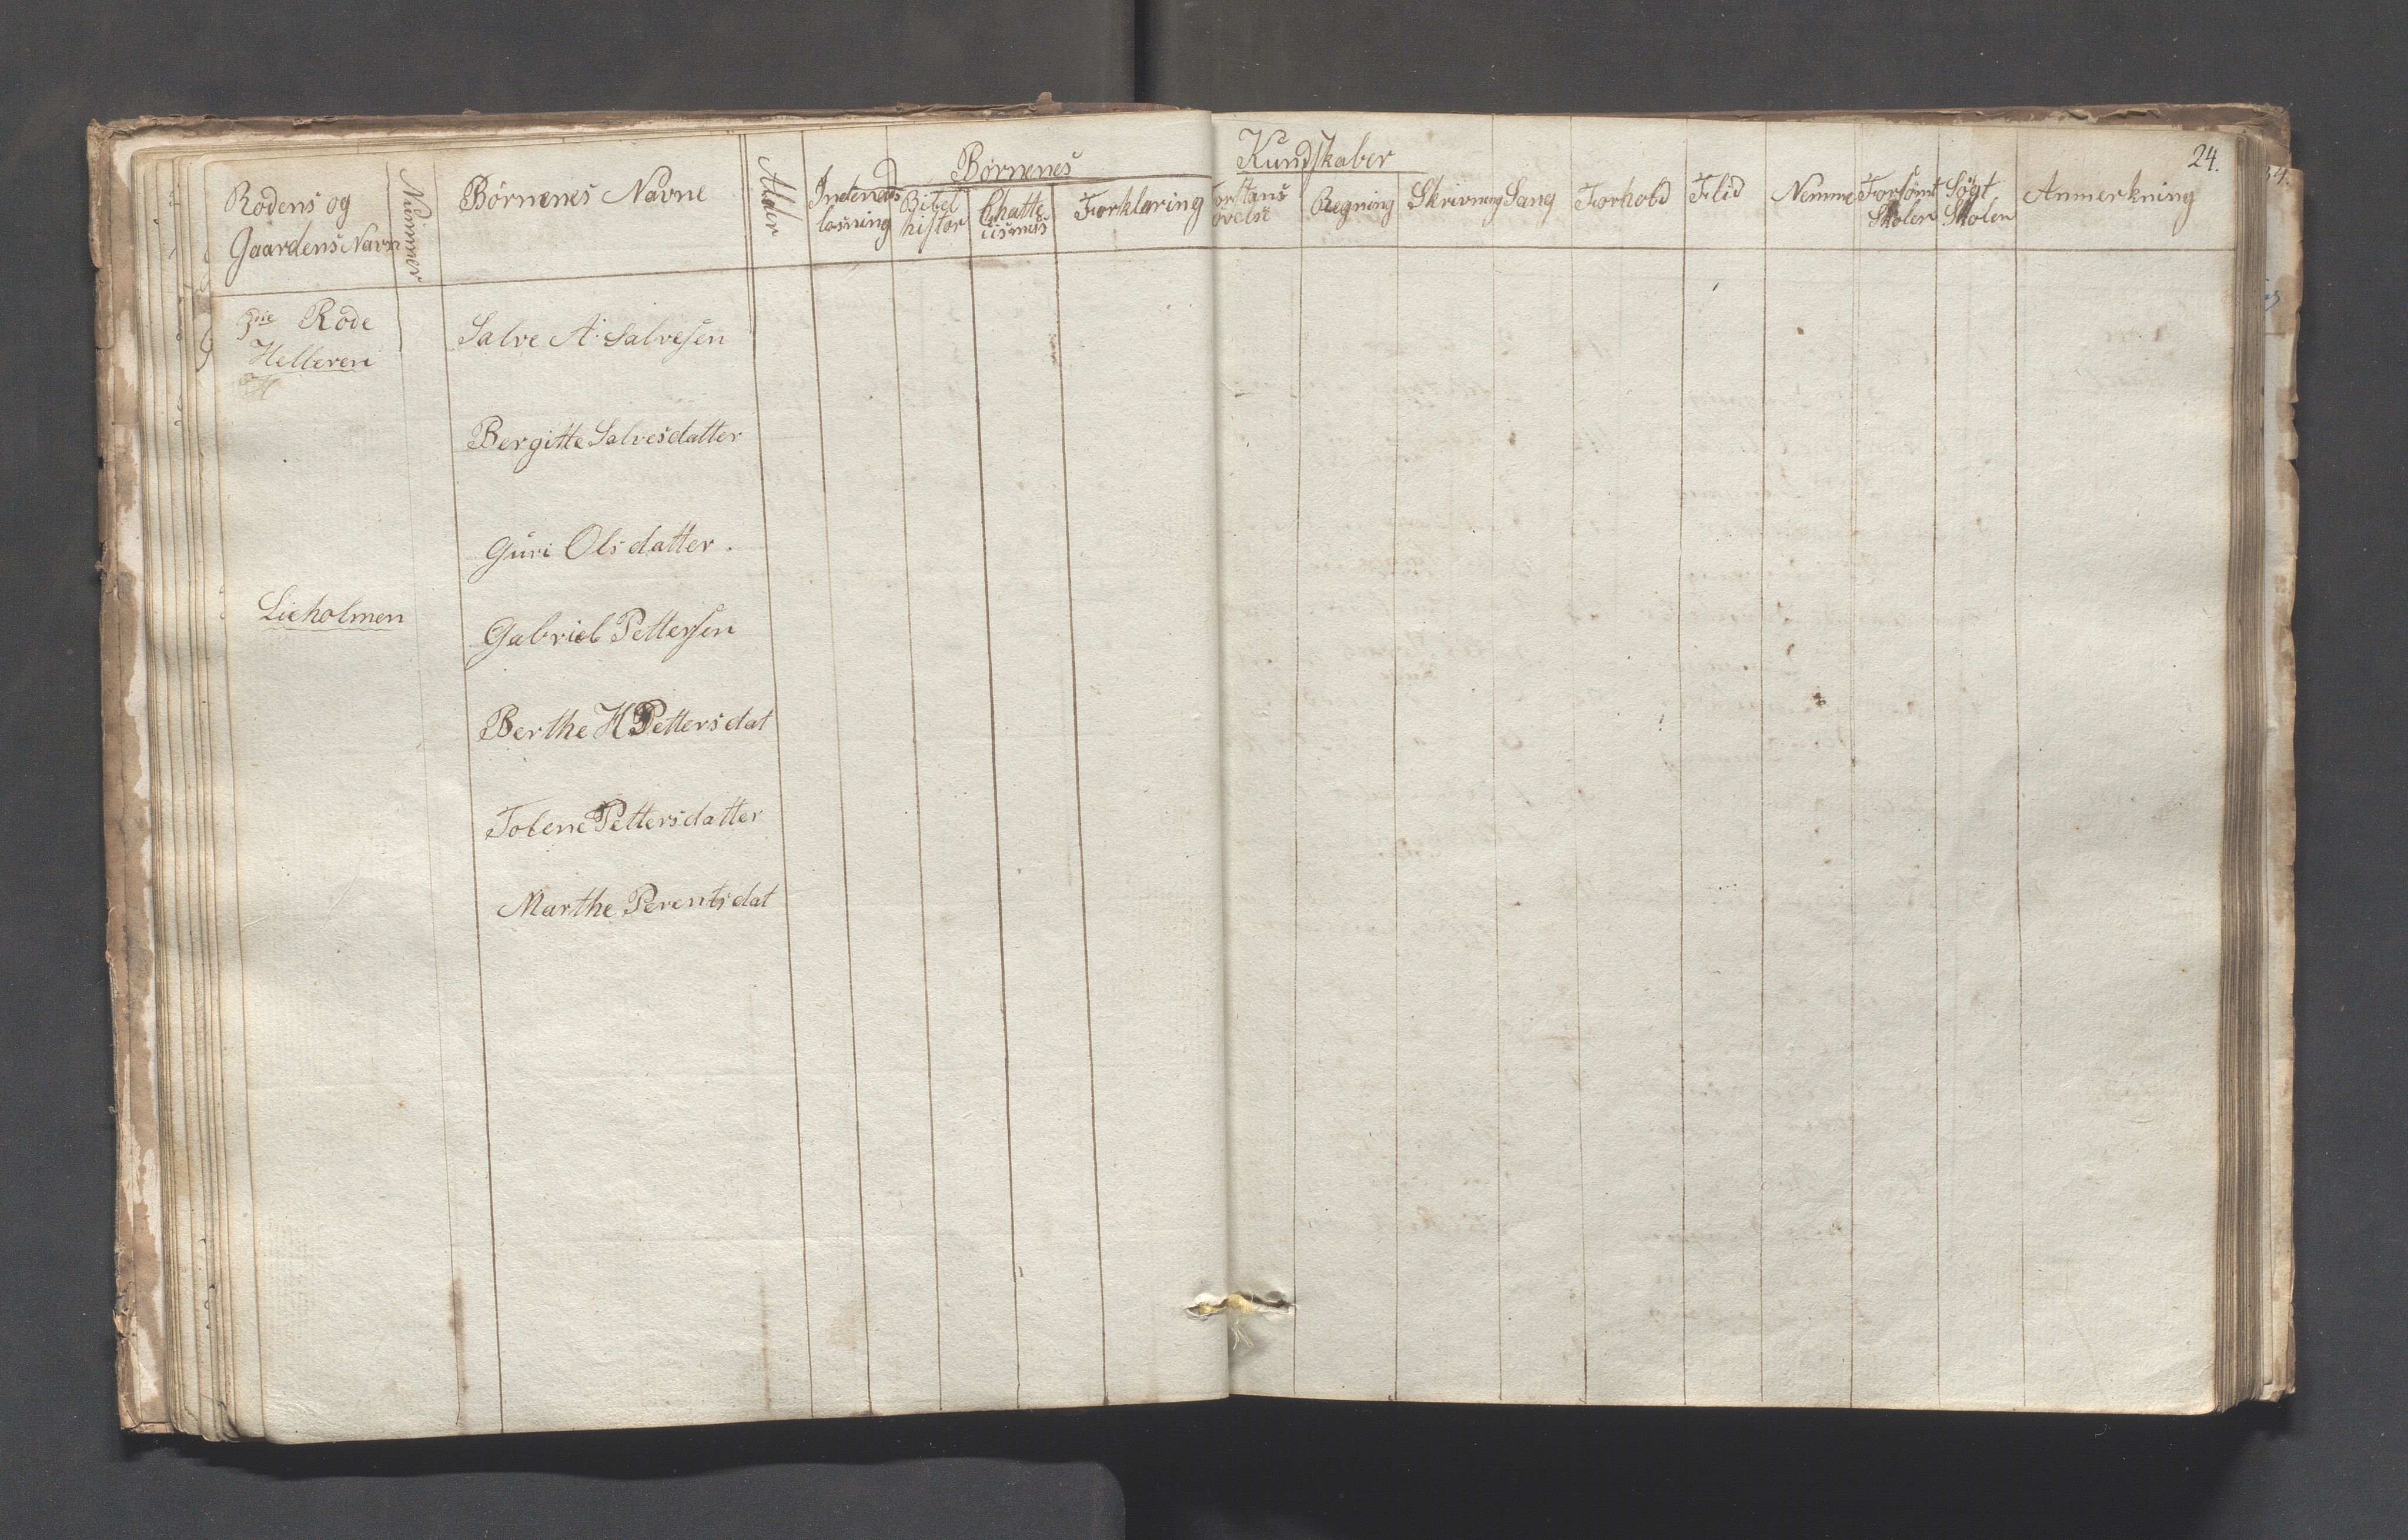 24.
Børnenes Kundskaber
Rodens og
Gaardens Navn
Nummer
Børnenes Navne
Alder
Indenads
læsning
Bibel
histor
Chatte
cismus
Forklaring
Forstans
øvelse
Regning
Skrivning
Sang
Forhold
Flid
Nemme
Forsömt
Skolen
Søgt
Skolen
Anmerkning
3die Rode
Helleren
Salve A. Salvesen
Bergitte Salvesdatter
Guri Olsdatter.
Lieholmen
Gabriel Pettersen
Berthe H Pettersdat
Tolene Pettersdatter
Marthe Perentsdat